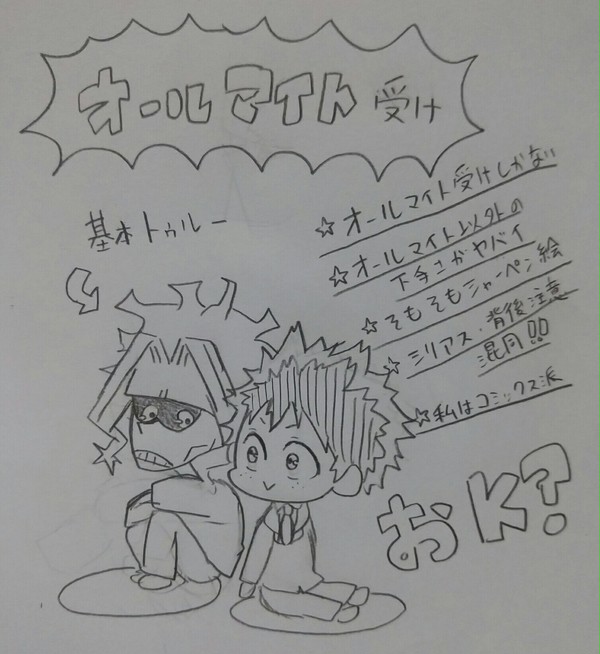 オールマイト受け
基本トゥルー
☆オールマイト受けしかない
☆オールマイト以外の
下手さがヤバイ
☆そもそもシャーペン絵
☆シリアス、背後注意
混同!!
☆私はコミックス派
おK?